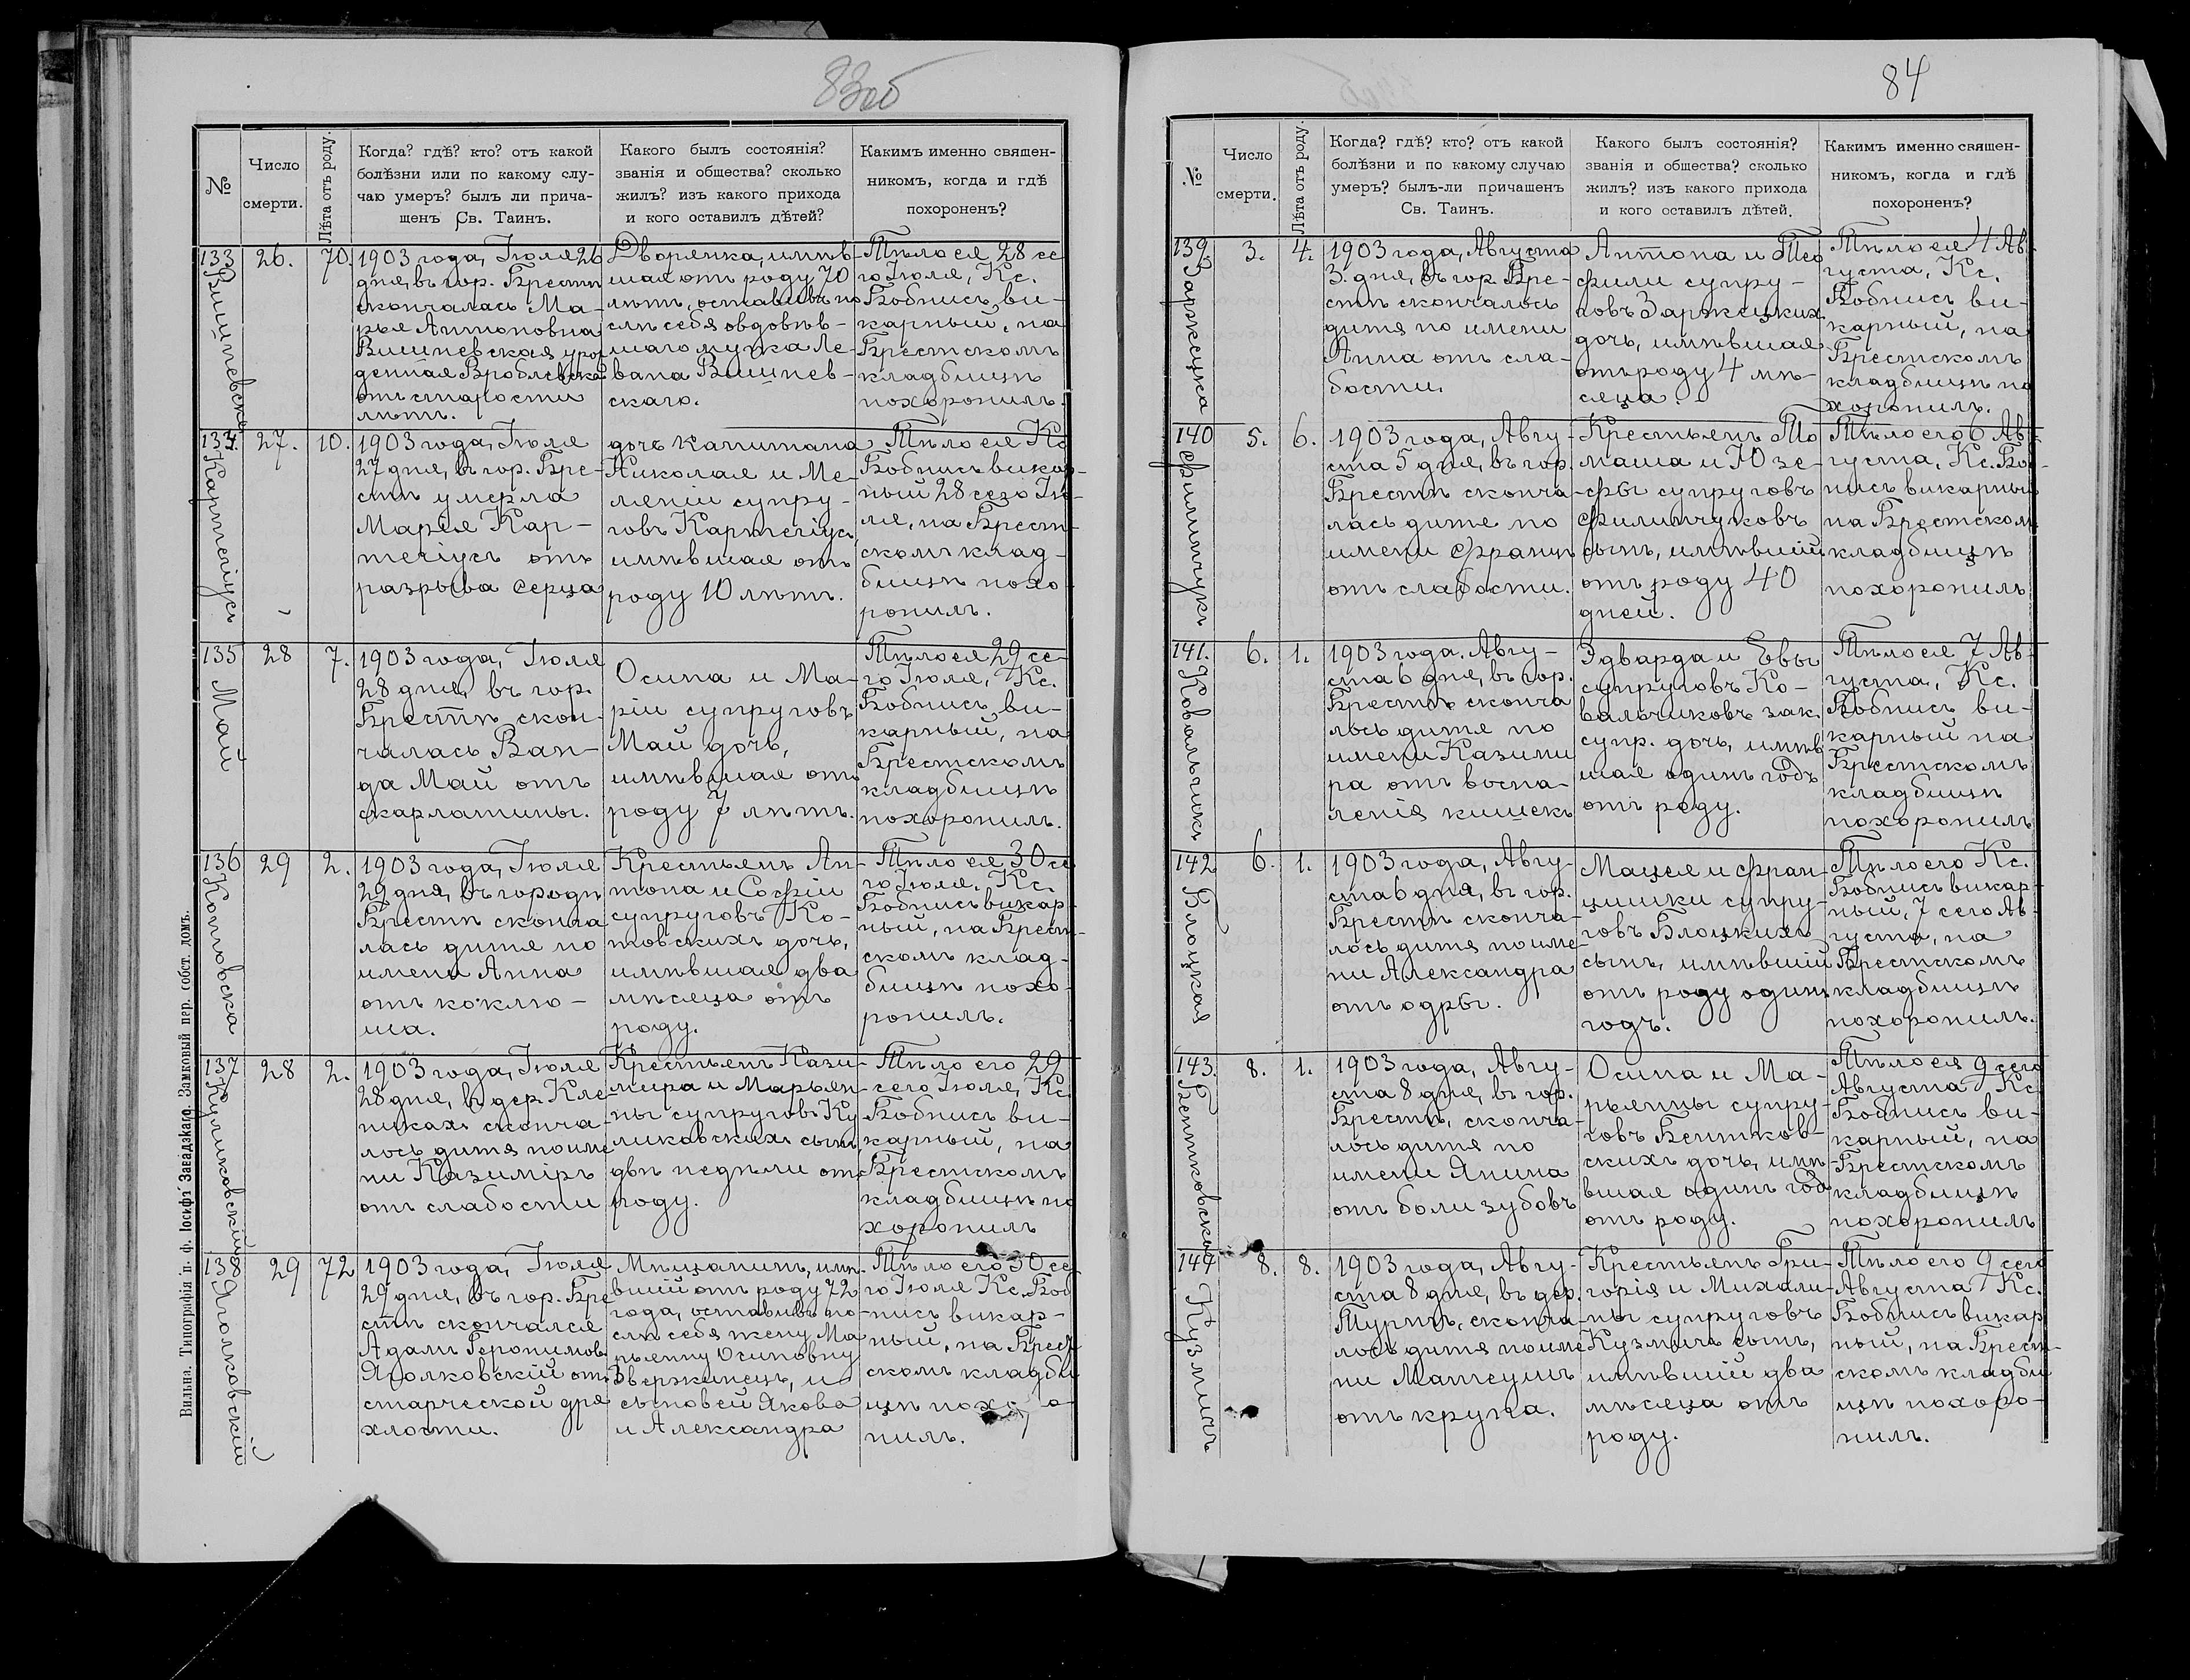 83об
№
Число
смерти.
Лѣта отъ роду.
Когда? гдѣ? кто? отъ какой
болѣзни или по какому слу-
чаю умеръ? былъ ли прича-
щенъ Св. Таинъ.
Какого былъ состоянія?
званія и общества? сколько
жилъ? изъ какого прихода
и кого оставилъ дѣтей?
Какимъ именно священ-
никомъ, когда и гдѣ
похороненъ?
133
Вишневская
26.
70.
1903 года, Іюля 26
дня, въ гор. Брестѣ
скончалась Ма-
рья Антоновна
Вишневская урож
денная Вроблевска
отъ старости
лѣтъ.
Дворянка, имѣв-
шая отъ роду 70
лѣтъ, оставивъ по
слѣ себя овдовѣв-
шаго мужа Ле-
вана Вишнев-
скаго.
Тѣло ея 28 се
го Іюля, Кс.
Бобнисъ, ви-
карный, на
Брестскомъ
кладбищѣ
похоронилъ.
134.
Картеніусъ
27.
10.
1903 года, Іюля
27 дня, въ гор. Бре-
стѣ умерла
Марія Кар-
теніусъ отъ
разрыва серца
дочь капитана
Николая и Ме-
леніи супру-
говъ Картеніусъ
имѣвшая отъ
роду 10 лѣтъ.
Тѣло ея Кс
Бобнисъ викар-
ный 28 сего Ію-
ля, на Брест-
скомъ клад-
бищѣ похо-
ронилъ.
135
Май
28
7.
1903 года, Іюля
28 дня, въ гор.
Брестѣ скон-
чалась Ван-
да Май отъ
скарлатины.
Осипа и Ма-
ріи супруговъ
Май дочь,
имѣвшая отъ
роду 7 лѣтъ.
Тѣло ея 29 се-
го Іюля, Кс.
Бобнисъ, ви-
карный, на
Брестскомъ
кладбищѣ
похоронилъ.
136
Котовска
29
2.
1903 года, Іюля
29 дня, въ городѣ
Брестѣ сконча
лась дитя по
имени Анна
отъ коклю-
ша.
Крестьянъ Ан-
тона и Софіи
супруговъ Ко-
товскихъ дочь,
имѣвшая два
мѣсяца отъ
роду.
Тѣло ея 30 се
го Іюля, Кс.
Бобнисъ викар-
ный, на Брест-
скомъ клад-
бищѣ похо-
ронилъ.
137
Куликовскій
28
2.
1903 года, Іюля
28 дня, въ дер. Кле-
никахъ сконча-
лось дитя по име
ни Казиміръ
отъ слабости
Крестьянъ Кази-
мира и Марьян-
ны супруговъ Ку
ликовскихъ сынъ
двѣ недѣли отъ
роду.
Тѣло его 29
сего Іюля, Кс.
Бобнисъ ви-
карный, на
Брестскомъ
кладбищѣ по
хоронилъ
138
Яголковскій
29
72
1903 года, Іюля
29 дня, въ гор. Бре
стѣ скончался
Адамъ Геронимов.
Яголковскій отъ
старческой дря
хлости.
Мѣщанинъ, имѣ-
вшій отъ роду 72
года, оставивъ по-
слѣ себя жену Ма
рьянну Осиповну
Звержинецъ, и
сыновей Якова
и Александра
Тѣло его 30 се
го Іюля Кс. Боб
нисъ викар-
ный, на Брест
скомъ кладби
щѣ похо о-
нилъ.
Вильна. Типографія п. ф. Іосифъ Завадзкаго. Замковый пер. собст. домъ.
84
№
Число
смерти.
Лѣта отъ роду.
Когда? гдѣ? кто? отъ какой
болѣзни и по какому случаю
умеръ? былъ-ли причащенъ
Св. Таинъ.
Какого былъ состоянія?
званія и общества? сколько
жилъ? изъ какого прихода
и кого оставилъ дѣтей.
Какимъ именно священ-
никомъ, когда и гдѣ
похороненъ?
139.
Заржецка
3.
4.
1903 года, Августа
3 дня, въ гор. Бре-
стѣ скончалось
дитя по имени
Анна отъ сла-
бости.
Антона и Тео
фили супру-
говъ Заржецких
дочь, имѣвшая
отъ роду 4 мѣ-
сяца.
Тѣло ея 4 Ав-
густа, Кс.
Бобнисъ ви-
карный, на
Брестскомъ
кладбищѣ по
хоронилъ.
140
Филипчукъ
5.
6.
1903 года, Авгу-
ста 5 дня, въ гор.
Брестѣ сконча
лась дитя по
имени Францъ
отъ слабости.
Крестьянъ То
маша и Юзе-
фы супруговъ
Филипчуковъ
сынъ, имѣвшій
отъ роду 40
дней.
Тѣло его 6 Ав-
густа, Кс. Боб-
нисъ викарный
на Брестском
кладбищѣ
похоронилъ
141.
Ковальчикъ
6.
1.
1903 года. Авгу-
ста 6 дня, въ гор.
Брестѣ сконча
лось дитя по
имени Казими
ра отъ воспа-
ленія кишекъ
Эдварда и Евы
супруговъ Ко-
вальчиковъ зак.
супр. дочь, имѣв
шая одинъ годъ
отъ роду.
Тѣло ея 7 Ав-
густа, Кс.
Бобнисъ ви-
карный на
Брестскомъ
кладбищѣ
похоронилъ
142
Блоцкая
6.
1.
1903 года, Авгу-
ста 6 дня, въ гор.
Брестѣ сконча-
лось дитя по име-
ни Александра
отъ одры.
Мацея и Фран-
цишки супру-
говъ Блоцкихъ
сынъ, имѣвшій
отъ роду одинъ
годъ.
Тѣло его Кс.
Бобнисъ викар-
ный, 7 сего Ав-
густа, на
Брестскомъ
кладбищѣ
похоронилъ.
143.
Бентковска
8.
1.
1903 года, Авгу-
ста 8 дня, въ гор.
Брестѣ, сконча-
лось дитя по
имени Янина
отъ боли зубовъ
Осипа и Ма-
рьянны супру-
говъ Бентков-
скихъ дочь, имѣ-
вшая одинъ годъ
отъ роду.
Тѣло ея 9 сего
Августа Кс.
Бобнисъ ви-
карный, на
Брестскомъ
кладбищѣ
похоронилъ
144
Кузмичъ
8.
8.
1903 года, Авгу-
ста 8 дня, въ дер.
Туричъ, сконча
лось дитя по име
ни Матеушъ
отъ крупа.
Крестьянъ Гри-
горія и Михали-
ны супруговъ
Кузмичъ сынъ,
имѣвшій два
мѣсяца отъ
роду.
Тѣло его 9 сего
Августа Кс.
Бобнисъ викар
ный, на Брест-
скомъ кладби
щѣ похоро-
нилъ.